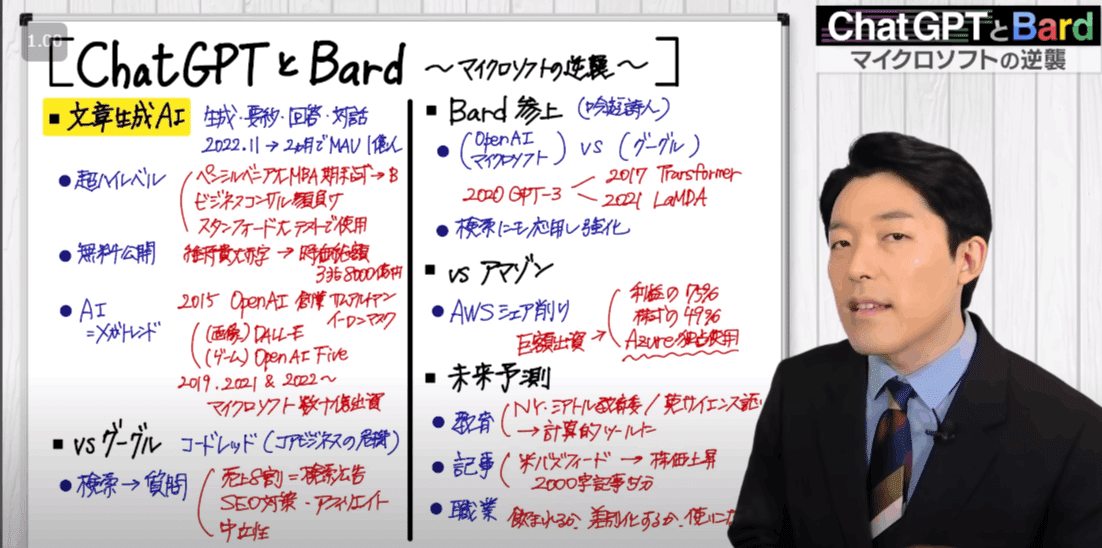 1.00
[ChatGPTとBard ～マイクロソフトの逆襲～]
ChatGPTとBard
マイクロソフトの逆襲
■ 文章生成AI 生成・要約・回答・対話
2022.11 → 2ヵ月でMAU 1億人
● 超ハイレベル
ペンシルベニア大MBA期末試→B
ビジネスコンサル顔負け
スタンフォード大テストで使用
● 無料公開
維持費大赤字 → 時価総額
3兆8000億円
● AI
=メガトレンド
2015 OpenAI 創業 サムアルトマン
イーロンマスク
(画像) DALL-E
(ゲーム) OpenAI Five
2019.2021 & 2022～
マイクロソフト 数十億出資
■ vsグーグル コードレッド (コアビジネスの危機)
● 検索→質問
売上8割=検索広告
SEO対策・アフィリエイト
中立性
■ Bard 参上 (吟遊詩人)
● (OpenAI マイクロソフト) vs (グーグル)
2020 GPT-3
2017 Transformer
2021 LaMDA
● 検索にも応用し強化
■ vs アマゾン
● AWSシェア削り
巨額出資 →
利益の75%
株式の49%
Azureの独占使用
■ 未来予測
● 教育
NY・シアトル教育委/英サイエンス誌
→計算的ツールに
● 記事
米バズフィード → 株価上昇
2000字記事5分
● 職業
飲まれるか、差別化するか、使いこ